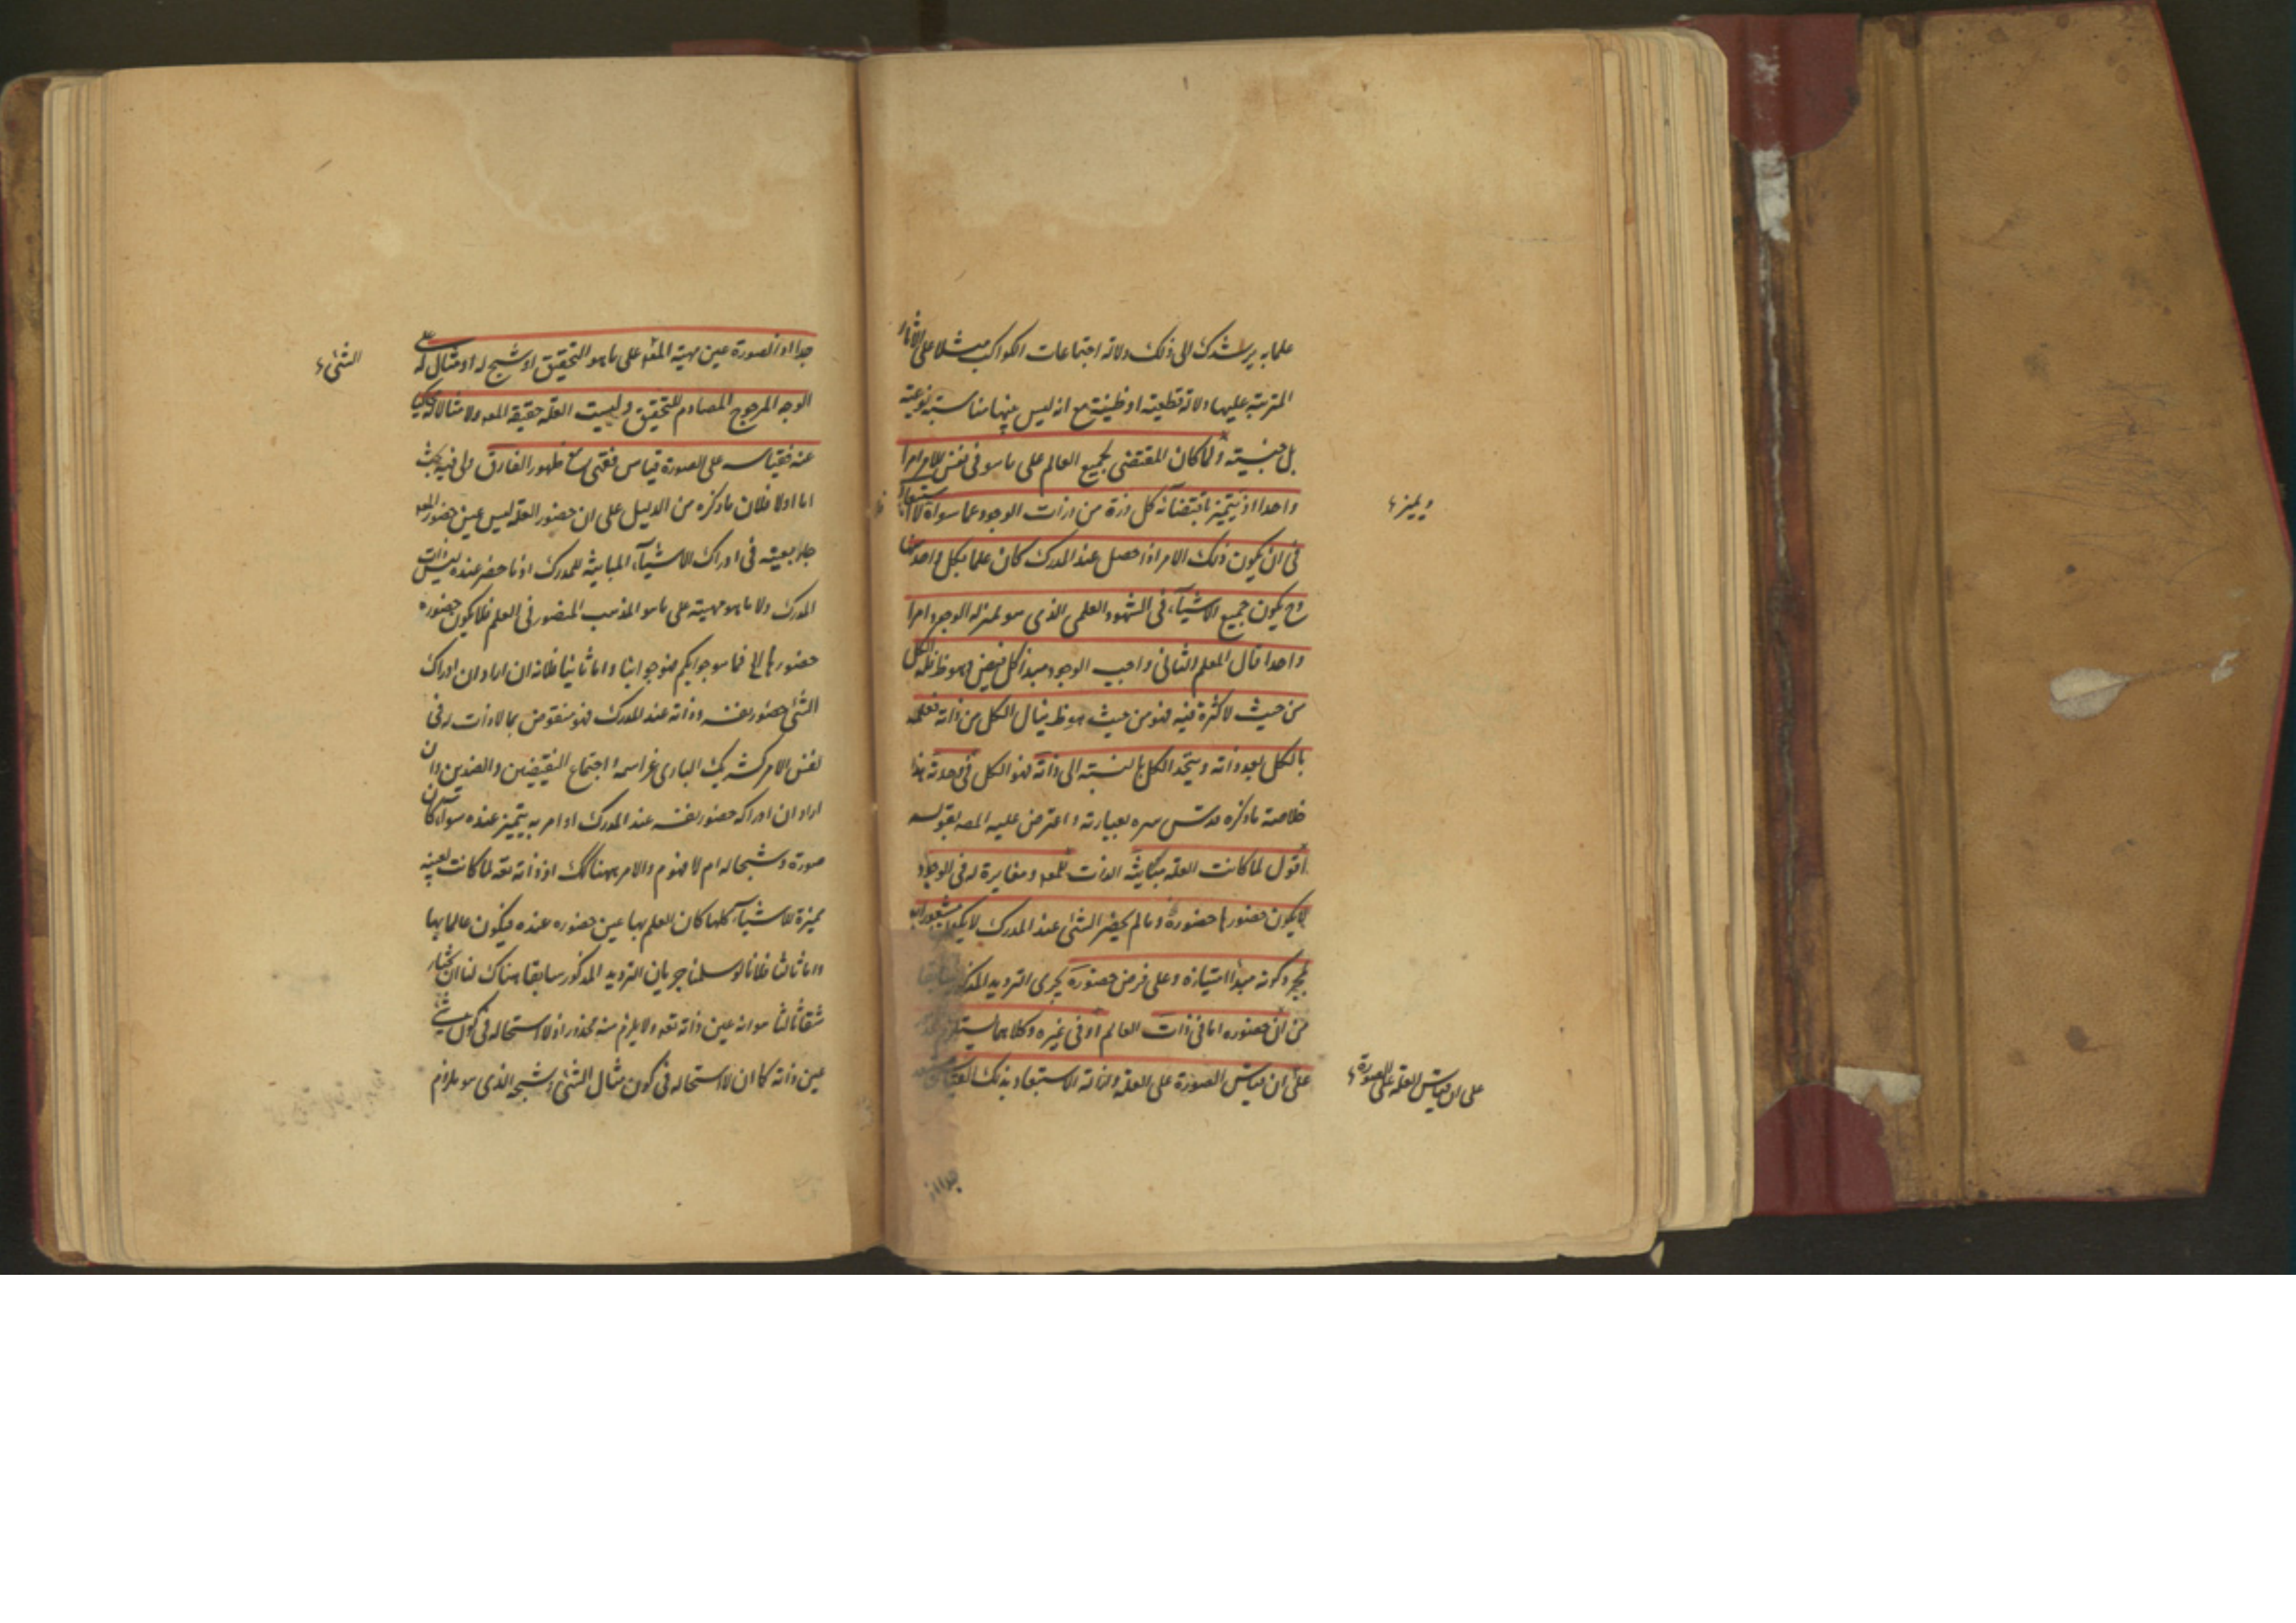 علما به يرشدك الى ذلك دلالة اجتماعات الكواكب مثلا على الآثار
المترتبة عليها دلالة قطعية او ظنية مع انه ليس بينها مناسبة نوعية
بل جنسية ولما كان المقتضى لجميع العالم على ما هو فى نفس الامر امرا
واحدا اذ يتميز باقتضائه كل ذرة من ذرات الوجود عما سواه لا استبعاد
فى ان يكون ذلك الامر اذا حصل عند المدرك كان علما بكل واحد منها
وح يكون جميع الاشياء فى الشهود العلمى الذى هو بمنزلة الوجود امرا
واحدا قال المعلم الثانى واجب الوجود مبدأ كل فيض وهو ظ فله الكل
من حيث لا كثرة فيه فهو من حيث هو ظ ينال الكل من ذاته فعلمه
بالكل بعد ذاته ويتحد الكل بالنسبة الى ذاته فهو الكل فى وحدته هذا
خلاصة ما ذكره قدس سره بعبارته واعترض عليه المصـ بقوله
اقول لما كانت العلة مباينة الذات للمعـ ومغايرة له فى الوجود
لا يكون حضورها حضوره وما لم يحضر الشئ عند المدرك لا يكون مشعورا به
بمجرد كونه مبدأ امتيازه وعلى فرض حضوره يجرى الترديد المذكور سابقا
من ان حضوره اما فى ذات العالم او فى غيره وكلاهما يستلزم
على ان قياس الصورة على العلة وازالة الاستبعاد بذلك القياس
ويميز
على ان قياس العلة على الصورة
جدا اذ
جدا اذ الصورة عين مهية المعـ على ما هو التحقيق او شبح له او مثال له على
الوجه المرجوح المصادم للتحقيق وليست العلة حقيقة المعـ ولا مثالا له يحكى
عنه فقياسه على الصورة قياس فقهى مع ظهور الفارق ولى فيه بحث
اما اولا فلان ما ذكره من الدليل على ان حضور العلة ليس عين حضور المعـ
جار بعينه فى ادراك الاشياء المباينة للمدرك اذ ما حضر عنده ليس ذات
المدرك ولا ما هو مهيته على ما هو المذهب المنصور فى العلم فلا يكون حضوره
حضورها فما هو جوابكم فهو جوابنا واما ثانيا فلانه ان اراد ان ادراك
الشئ حضور نفسه وذاته عند المدرك فهو منقوض بما لا ذات له فى
نفس الامر كشريك البارى عز اسمه واجتماع النقيضين والضدين وان
اراد ان ادراكه حضور نفسه عند المدرك او امر به يتميز عنده سواء كان
صورة وشبحا له ام لا فهو م والامر ههنا كك اذ ذاته تعـ لما كانت بعينه
مميزة للاشياء كلها كان العلم بها عين حضوره عنده فيكون عالما بها
واما ثالثا فلانا لو سلمنا جريان الترديد المذكور سابقا هناك لنا ان نختار
شقا ثالثا هو انه عين ذاته تعـ ولا يلزم منه محذور اذ لا استحالة فى كون
عين ذاته كما ان لا استحالة فى كون مثال الشئ وشبحه الذى هو
الشئ